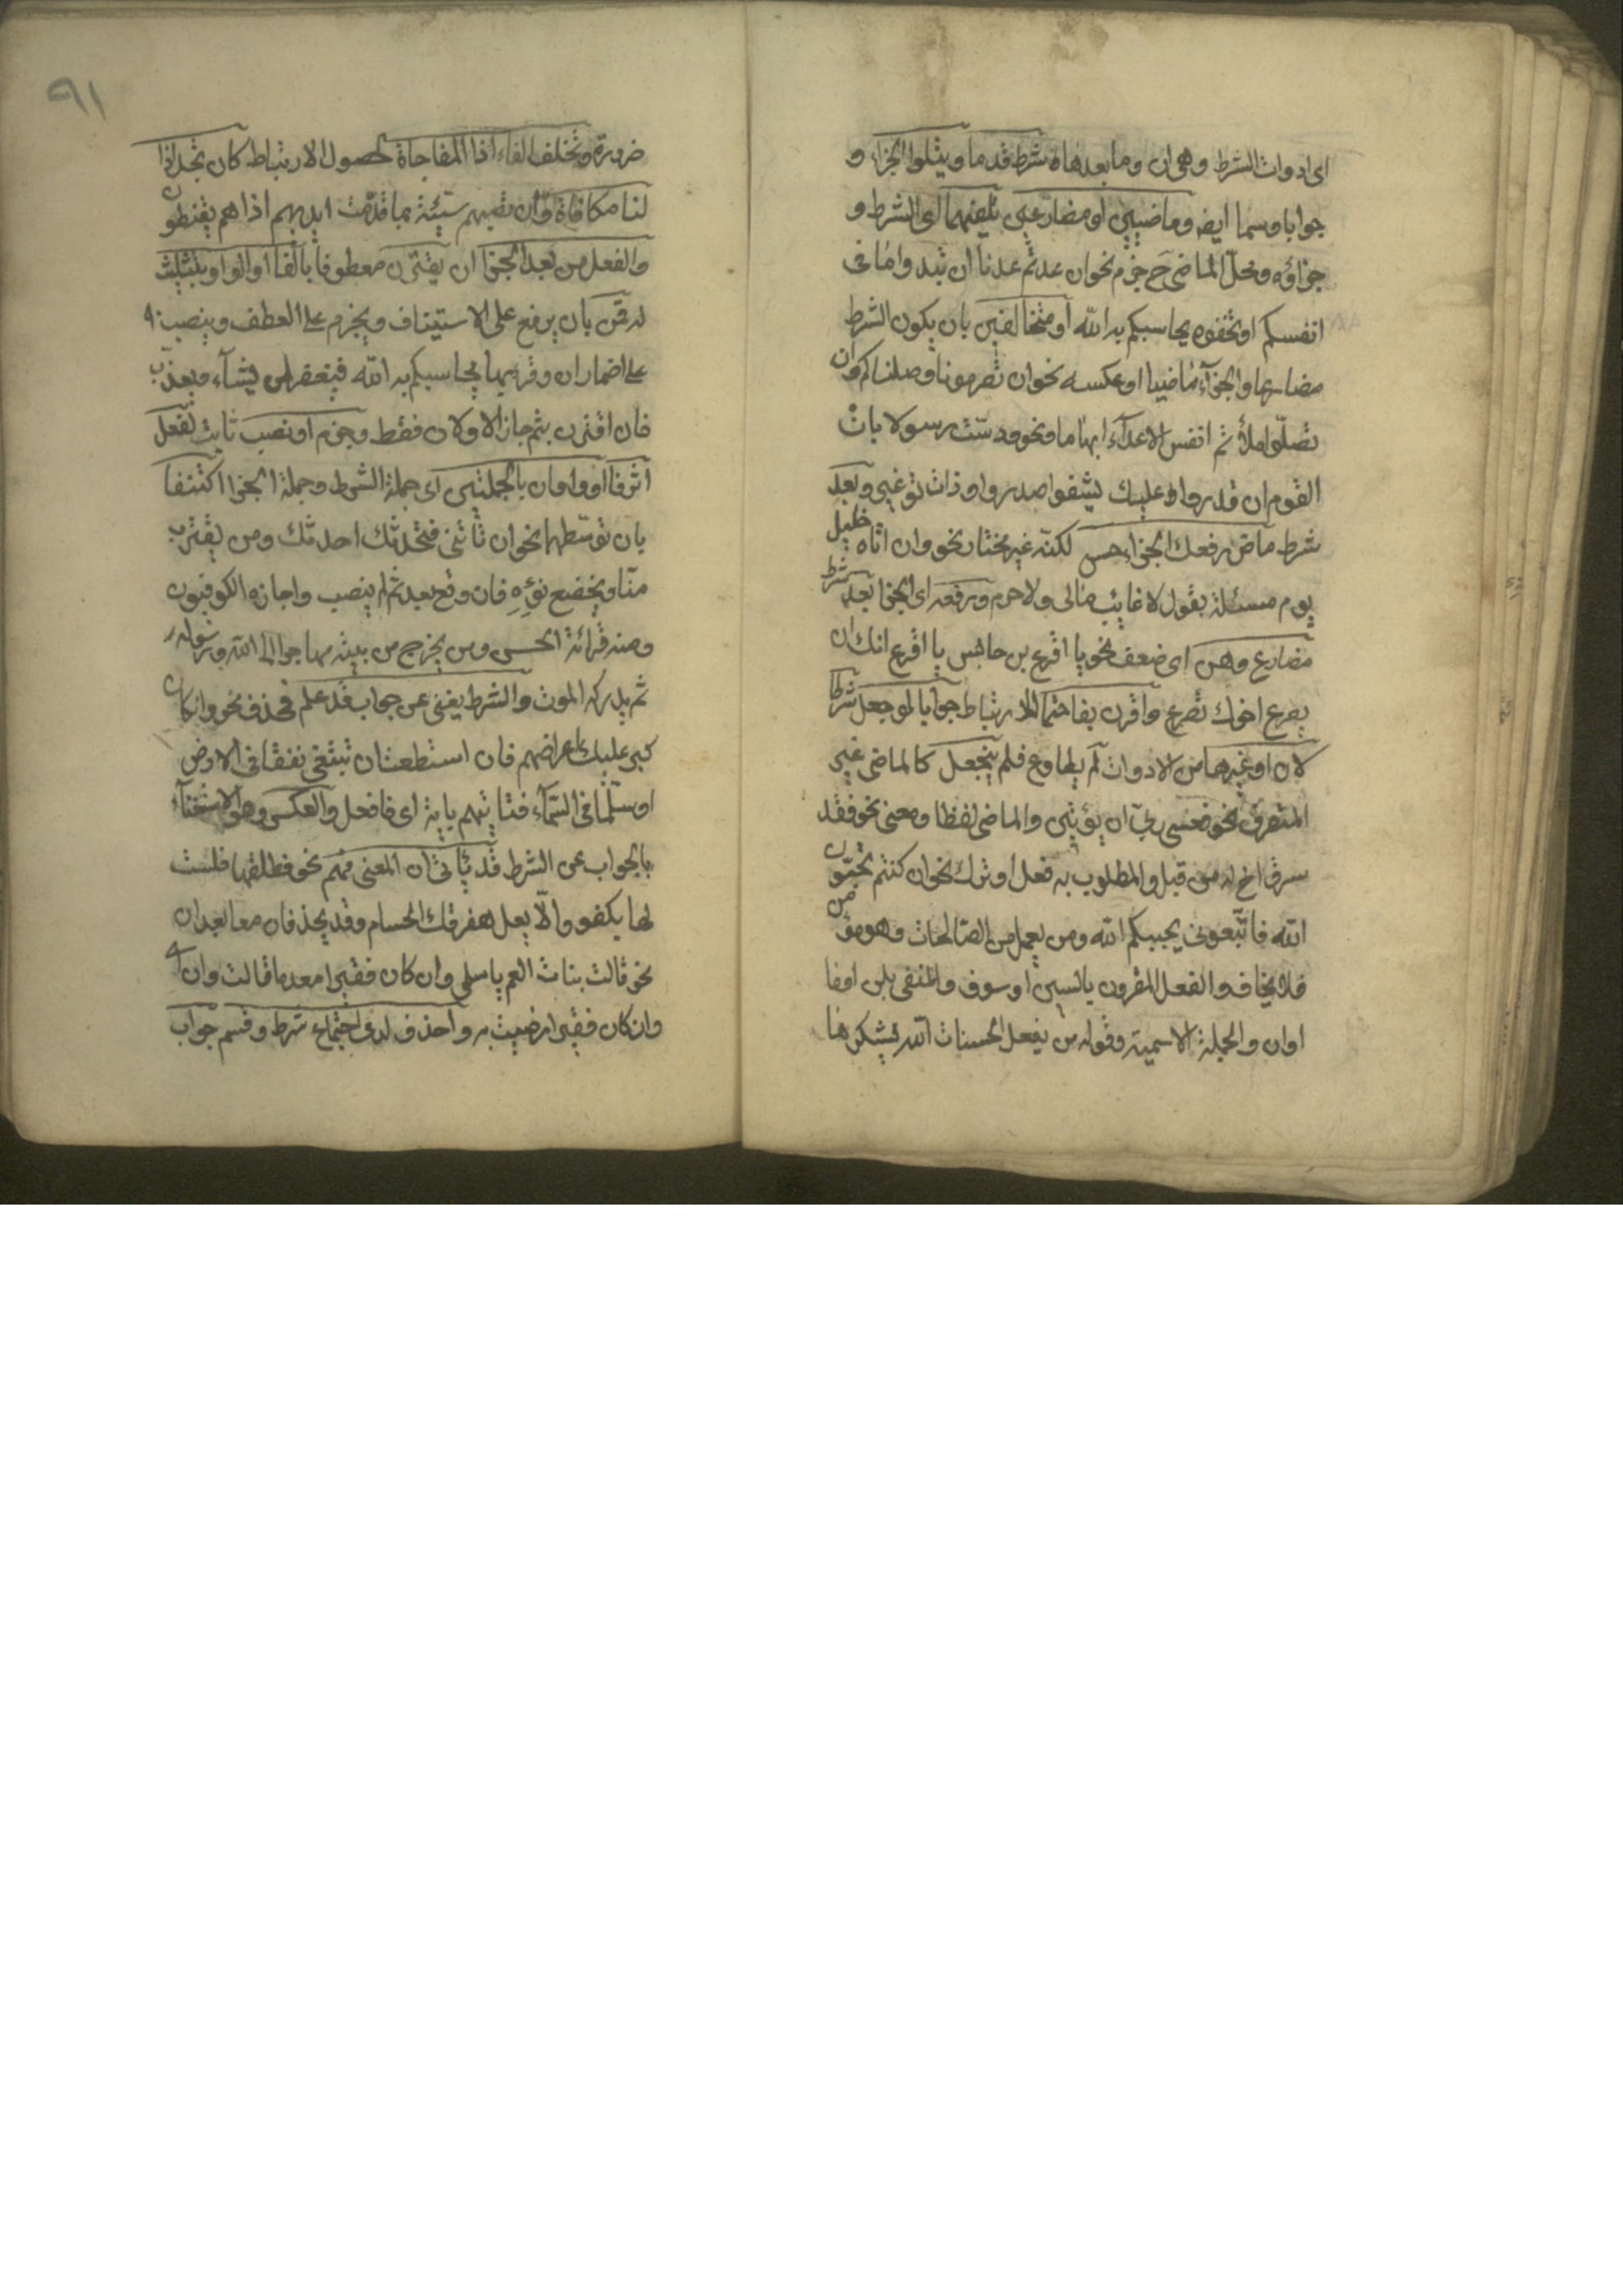 اى ادوات الشرط وهى ان وما بعدها ه شرط قدما ويتلوا الجزاء و
جوابا وسما ايضه وماضيين او مضارعين تلفيهما اى الشرط و
جزاؤه ومحل الماضى ح جزم نحو ان عدتم عدنا ان تبدوا ما فى
انفسكم او تخفوه يحاسبكم به الله او متخالفين بان يكون الشرط
مضارعا والجزآء ماضيا او عكسه نحو ان تصرمونا وصلناكم وان
تصلوا ملأتم انفس الاعدآء ارهابا ونحو دسّت رسولا بانّ
القوم ان قدروا عليك يشفوا صدروا ذات توغير وبعد
شرط ماض رفعك الجزاء حسن لكنّه غير مختار نحو وان اتاه خليل
يوم مسئلة يقول لا غائب مالى ولا حرم ورفعه اى الجزا بعد شرط
مضارع وهن اى ضعف نحو يا اقرع بن حابس يا اقرع انك ان
يصرع اخوك تصرع واقرن بفا حتما للارتباط جوابا لو جعل شرطا
لان او غيرها من الادوات لم يطاوع فلم ينجعل كالماضى غير
المتصرف نحو فعسى ربى ان يؤتين والماضى لفظا ومعنى نحو فقد
سرق اخ له من قبل والمطلوب به فعل او ترك نحو ان كنتم تحبّون
الله فاتّبعونى يحببكم الله ومن يعمل من الصّالحات وهو مؤمن
فلا يخاف والفعل المقرون بالسين او سوف والمنفى بلن او فا
او ان والجملة الاسمية وقوله من يفعل الحسنات الله يشكرها
٩١
ضرورة وتخلف الفاء اذا المفاجاة لحصول الارتباط كان تجد اذا
لنا مكافاة وان تصبهم سيّئة بما قدّمت ايديهم اذا هم يقنطون
والفعل من بعد الجزا ان يقترن معطوفا بالفا او الواو بتثليث
له قمن بان يرفع على الاستيناف ويجزم على العطف وينصب
على اضمار ان وقرئ بها يحاسبكم به الله فيغفر لمن يشآء ويعذّب
فان اقترن بثم جاز الاولان فقط وجزم او نصب ثابت لفعل
اثر فا او واو ان بالجملتين اى جملة الشرط وجملة الجزا اكتنفا
بان توسّطهما نحو ان تاتنى فتحدثك احدثك ومن يقترب
منّا ويخضع نؤوه فان وقع بعد ثم لم ينصب واجازه الكوفيون
ومنه قرائة الحسن ومن يخرج من بيته مهاجرا الى الله ورسوله
ثم يدركه الموت والشرط يغنى عن جواب قد علم فحذف نحو وان كان
كبر عليك اعراضهم فان استطعت ان تبتغى نفقا فى الارض
او سلّما فى السّمآء فتاتيهم باية اى فافعل والعكس وهو الاستغنآء
بالجواب عن الشرط قد ياتى ان المعنى فهم نحو فطلقها فلست
لها بكفو والّا يعل مفرقك الحسام وقد يحذفان معا بعد ان
نحو قالت بنات العم يا سلمى وان كان فقيرا معدما قالت وان اى
وان كان فقيرا رضيت به واحذف لدى اجتماع شرط وقسم جواب